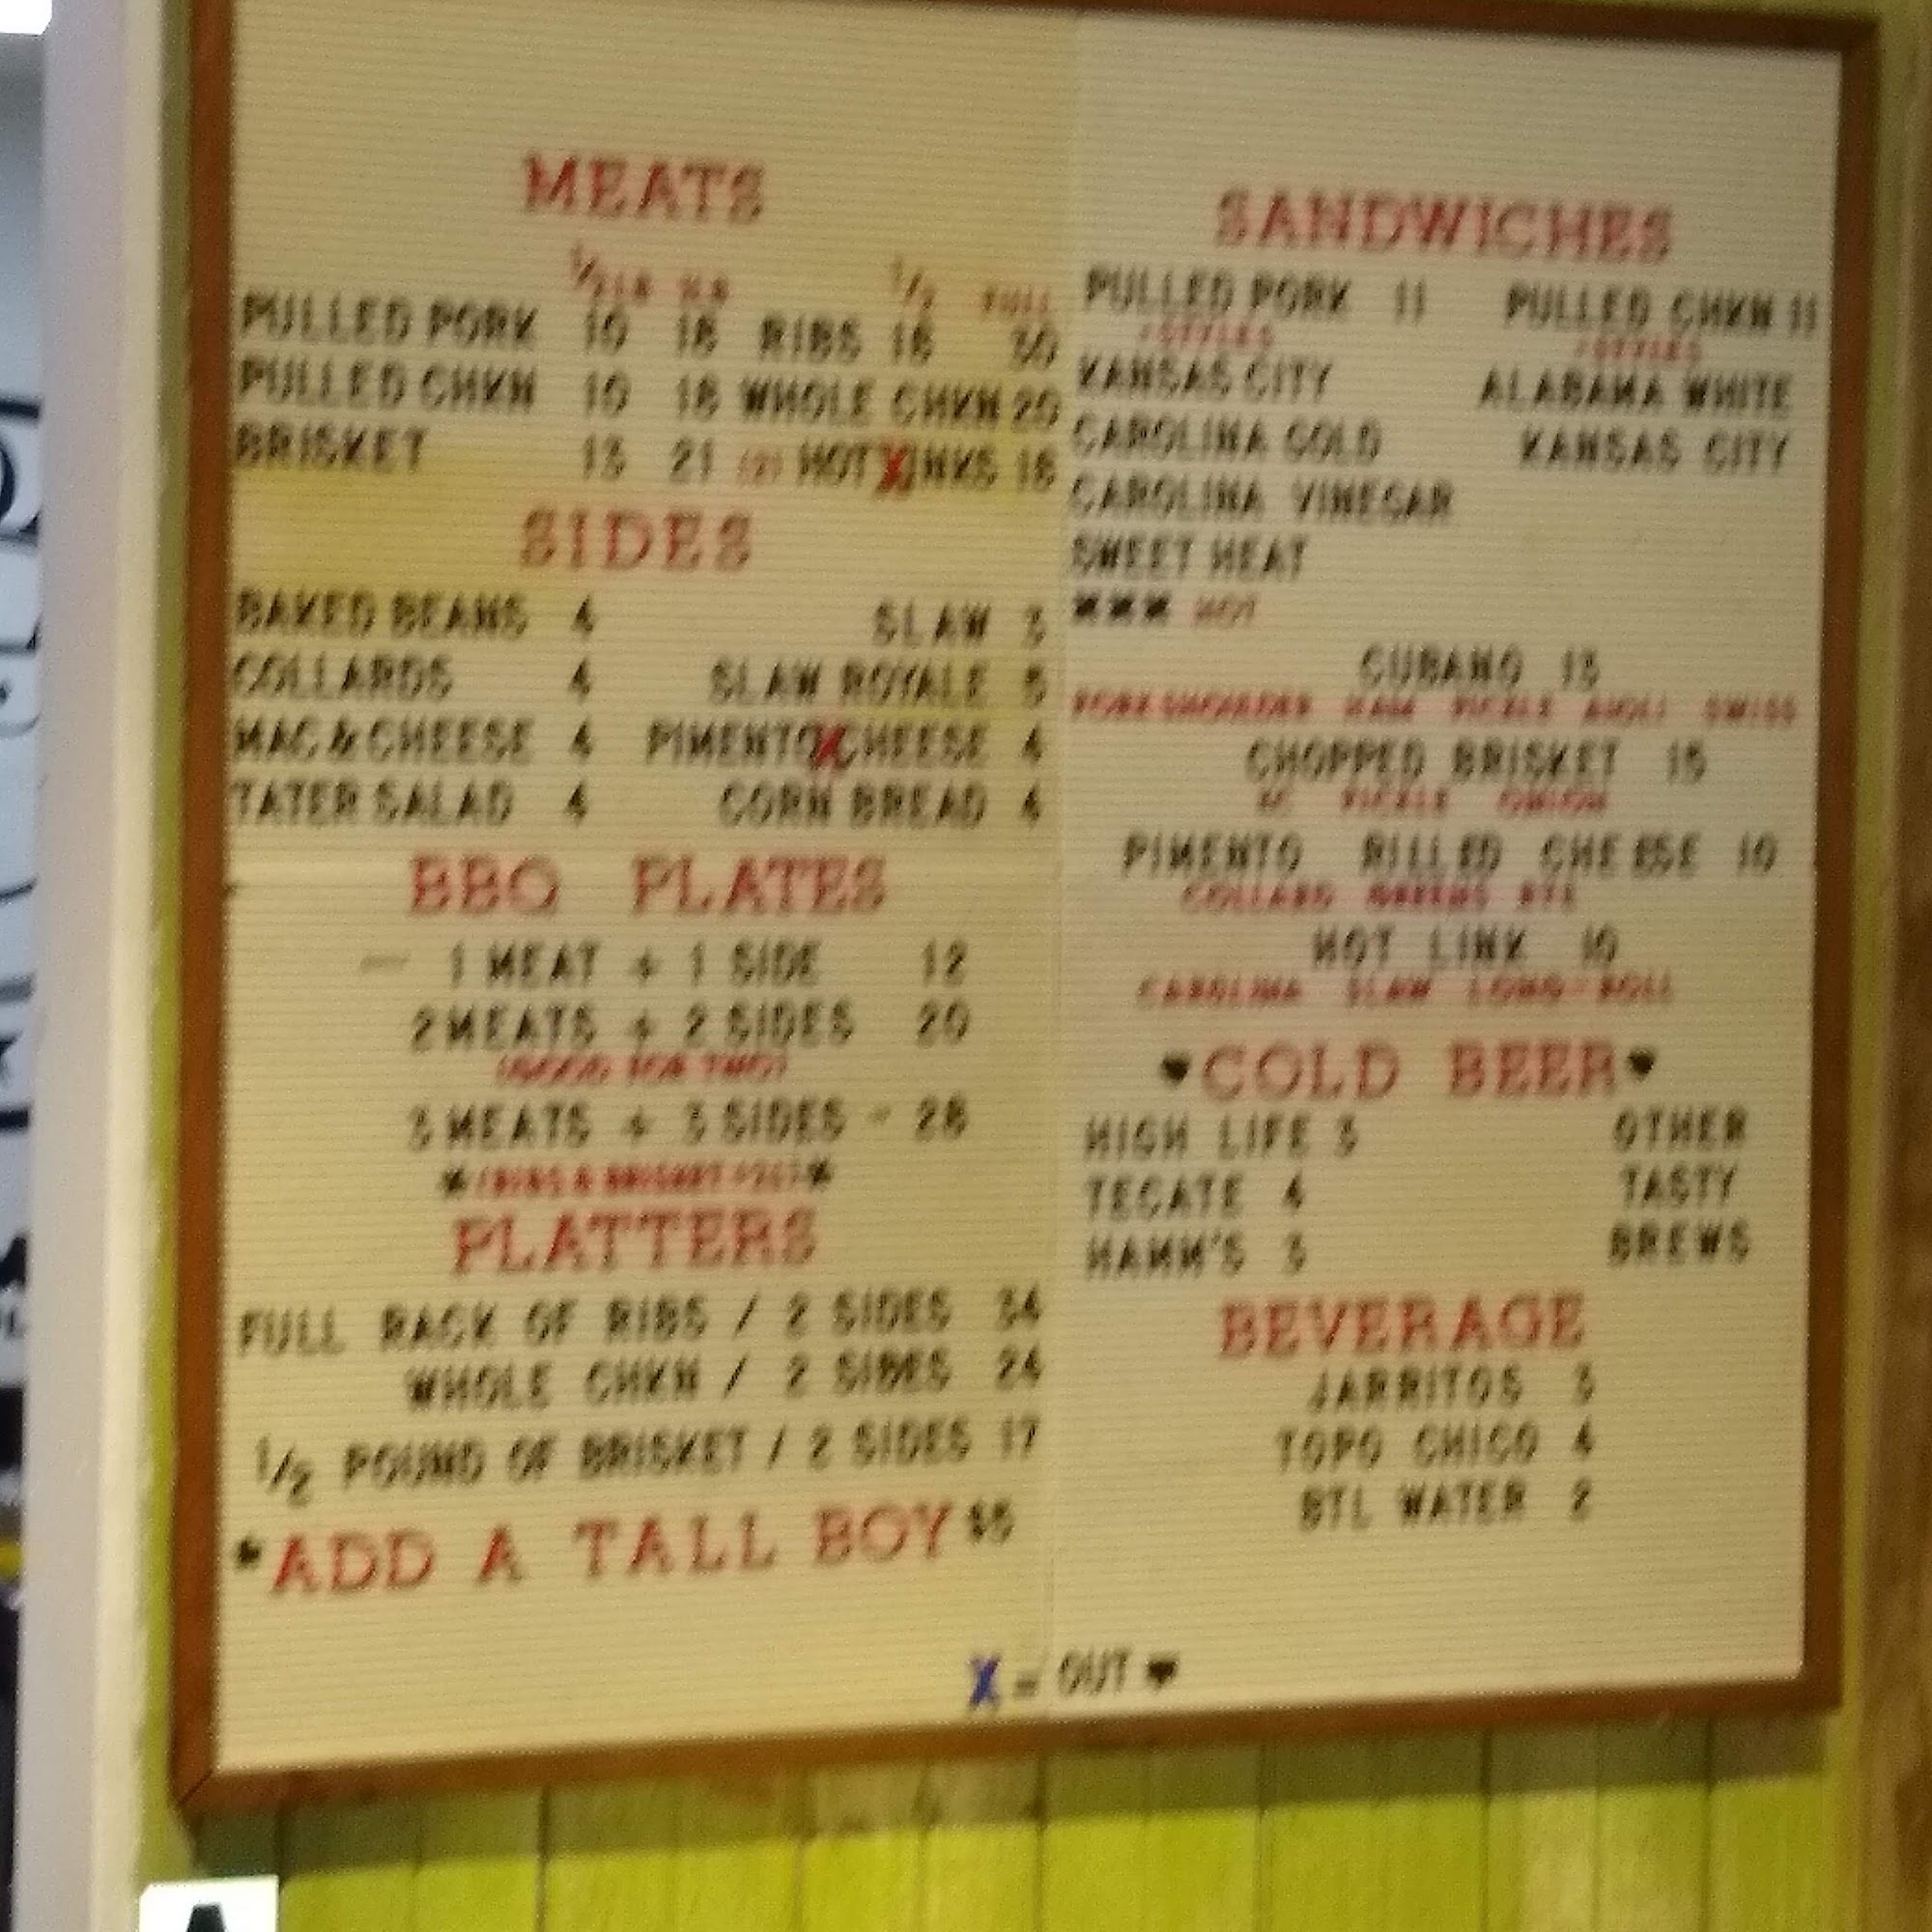 MEATS
1/2 LB LB 1/2 FULL
PULLED PORK 10 18 RIBS 16 30
PULLED CHKN 10 18 WHOLE CHKN 20
BRISKET 13 21 (2) HOT X INKS 18
SIDES
BAKED BEANS 4 SLAW 3
COLLARDS 4 SLAW ROYALE 5
MAC & CHEESE 4 PIMENTO X CHEESE 4
TATER SALAD 4 CORN BREAD 4
BBQ PLATES
1 MEAT + 1 SIDE 12
2 MEATS + 2 SIDES 20
(GOOD FOR TWO)
3 MEATS + 3 SIDES - 28
*(RIBS & BRISKET +2)*
PLATTERS
FULL RACK OF RIBS / 2 SIDES 34
WHOLE CHKN / 2 SIDES 24
1/2 POUND OF BRISKET / 2 SIDES 17
*ADD A TALL BOY $5
SANDWICHES
PULLED PORK 11 PULLED CHKN 11
/STYLES /STYLES
KANSAS CITY ALABAMA WHITE
CAROLINA GOLD KANSAS CITY
CAROLINA VINEGAR
SWEET HEAT
*** HOT
CUBANO 13
PORK SHOULDER HAM PICKLE AIOLI SWISS
CHOPPED BRISKET 15
KC PICKLE ONION
PIMENTO RILLED CHEESE 10
COLLARD GREENS RYE
HOT LINK 10
CAROLINA SLAW LONG-ROLL
♥COLD BEER♥
HIGH LIFE 3 OTHER
TECATE 4 TASTY
HAMM'S 3 BREWS
BEVERAGE
JARRITOS 3
TOPO CHICO 4
BTL WATER 2
X = OUT ♥
A